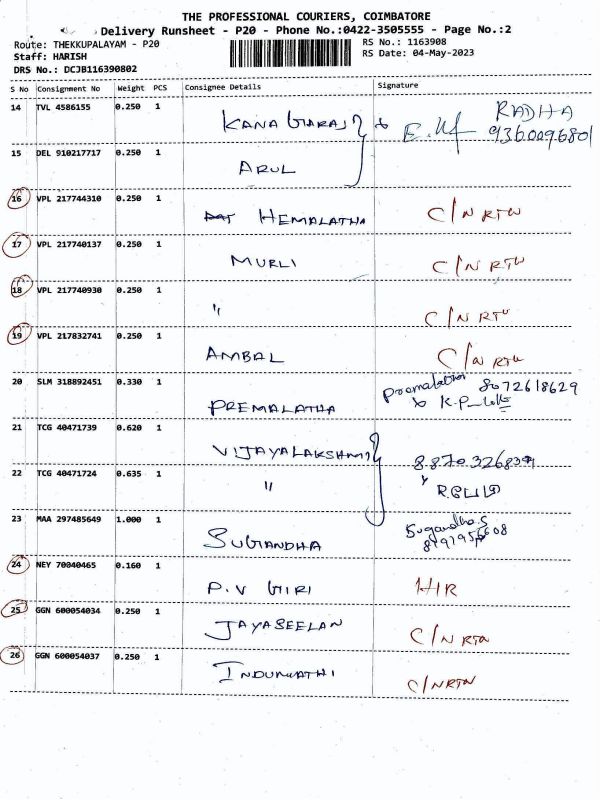 THE PROFESSIONAL COURIERS, COIMBATORE
Delivery Runsheet - P20 - Phone No.:0422-3505555 - Page No.:2
Route: THEKKUPALAYAM - P20
RS No.: 1163908
Staff: HARISH
RS Date: 04-May-2023
DRS No.: DCJB116390802
S No Consignment No Weight PCS Consignee Details Signature
14 TVL 4586155 0.250 1 KANAGARAJ RADHA 9360096801
15 DEL 910217717 0.250 1 ARUL
16 VPL 217744310 0.250 1 HEMALATHA C/N RTN
17 VPL 217740137 0.250 1 MURLI C/N RTN
18 VPL 217740930 0.250 1 " C/N RTN
19 VPL 217832741 0.250 1 AMBAL C/N RTN
20 SLM 318892451 0.330 1 PREMALATHA Premalatha 8072618629
21 TCG 40471739 0.620 1 VIJAYALAKSHMI
22 TCG 40471724 0.635 1 "
23 MAA 297485649 1.000 1 SUGANDHA Sugandha.S
24 NEY 70040465 0.160 1 P.V GIRI H/R
25 GGN 600054034 0.250 1 JAYASEELAN C/N RTN
26 GGN 600054037 0.250 1 INDUMATHI C/N RTN